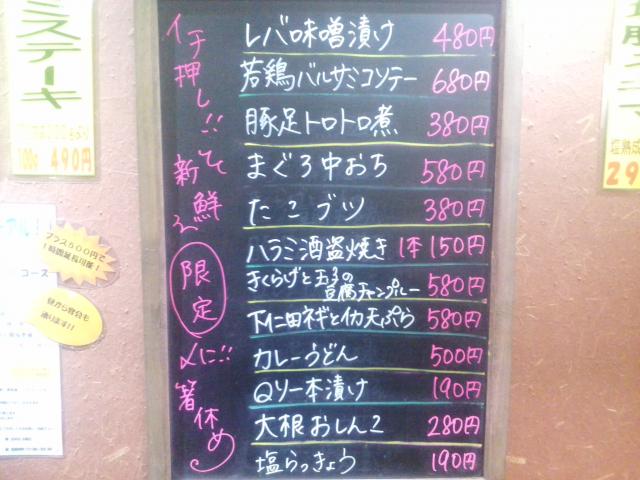 イチ押し!!
レバ味噌漬け 480円
若鶏バルサミコソテー 680円
豚足トロトロ煮 380円
新鮮
まぐろ中おち 580円
たこブツ 380円
限定
ハラミ酒盗焼き 1本 150円
きくらげと玉子の豆腐チャンプルー 580円
下仁田ネギとイカ天ぷら 580円
〆に!!
カレーうどん 500円
箸休め
Qリ一本漬け 190円
大根おしんこ 280円
塩らっきょう 190円
ミステーキ
100g 490円
プラス500円で
1時間延長可能!
コース
昼から宴会も
承ります!!
塩熟成